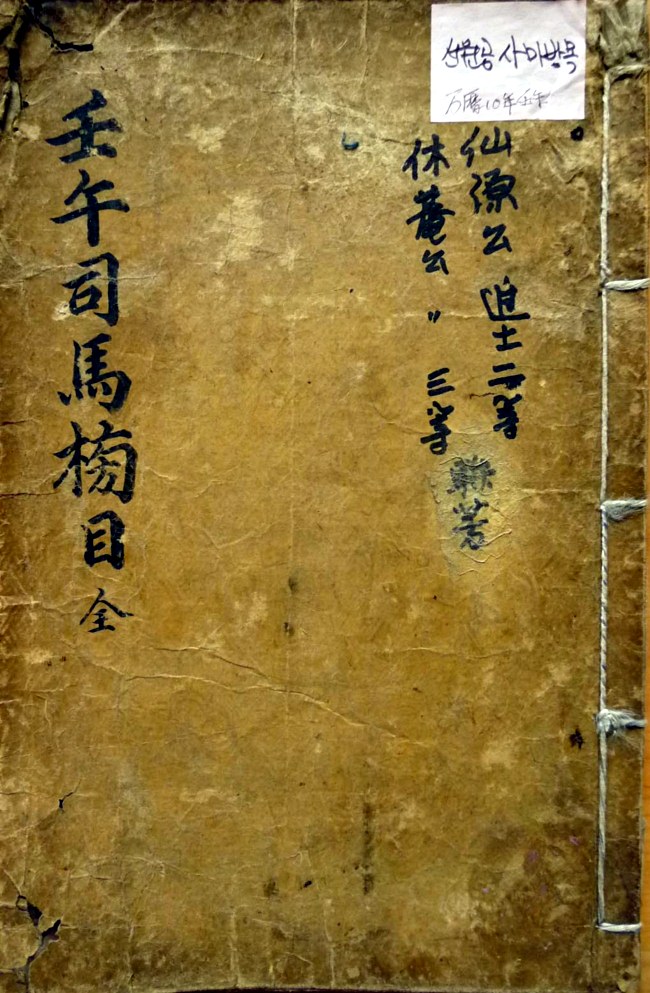 선원공 사마방목
万曆10年壬午
仙源公 進士 二等
休菴公 〃 三等
壬午司馬榜目 全